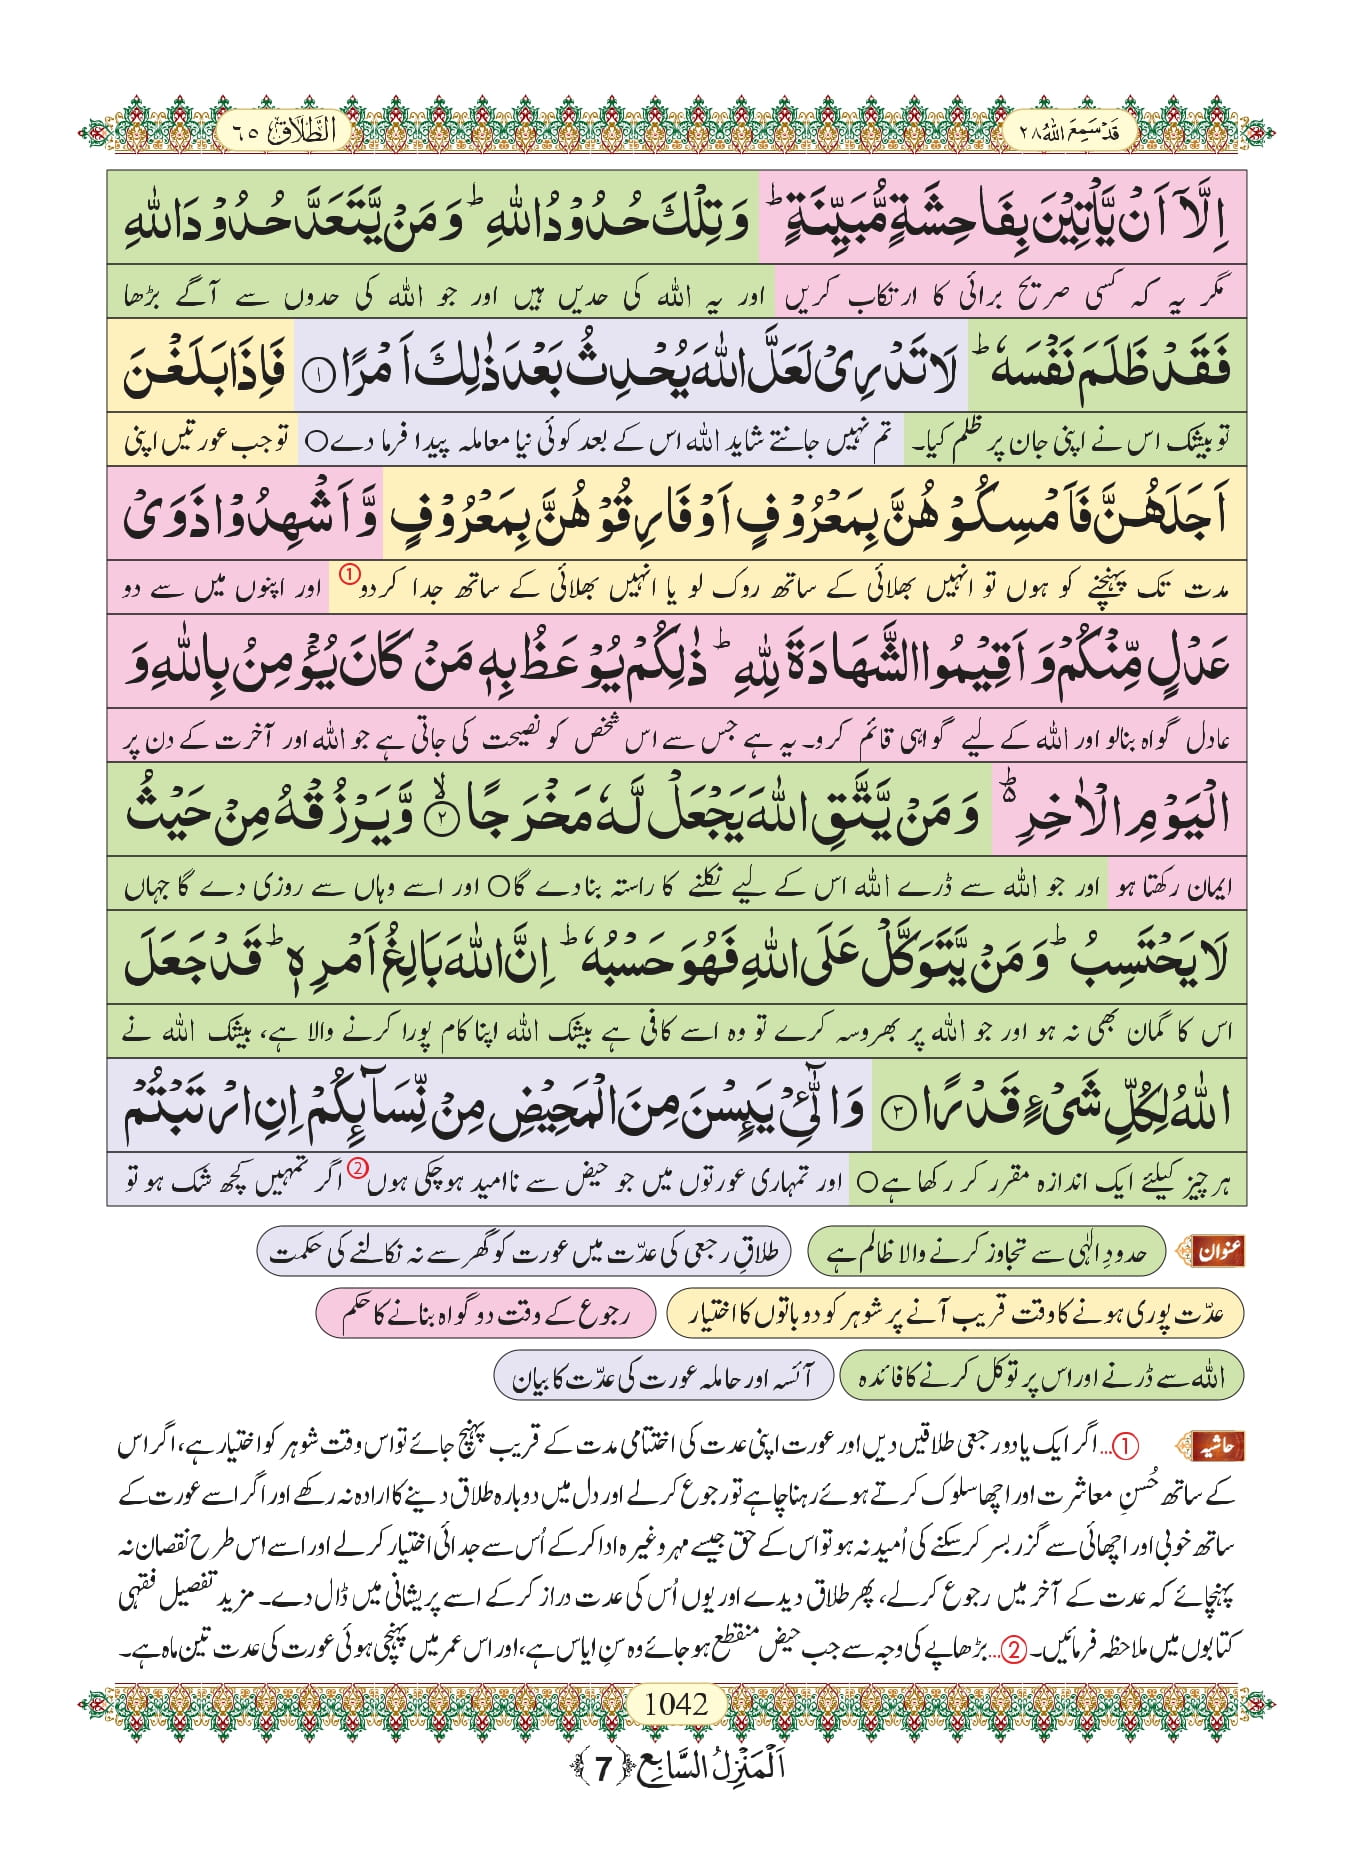 قَدْ سَمِعَ اللّٰهُ ٢٨
الطَّلَاق ٦٥
اِلَّاۤ اَنْ یَّاْتِیْنَ بِفَاحِشَةٍ مُّبَیِّنَةٍ ؕ وَ تِلْكَ حُدُوْدُ اللّٰهِ ؕ وَ مَنْ یَّتَعَدَّ حُدُوْدَ اللّٰهِ
مگر یہ کہ کسی صریح برائی کا ارتکاب کریں اور یہ اللہ کی حدیں ہیں اور جو اللہ کی حدوں سے آگے بڑھا
فَقَدْ ظَلَمَ نَفْسَهٗ ؕ لَا تَدْرِیْ لَعَلَّ اللّٰهَ یُحْدِثُ بَعْدَ ذٰلِكَ اَمْرًا ۝١ فَاِذَا بَلَغْنَ
تو بیشک اس نے اپنی جان پر ظلم کیا۔ تم نہیں جانتے شاید اللہ اس کے بعد کوئی نیا معاملہ پیدا فرما دے○ تو جب عورتیں اپنی
اَجَلَهُنَّ فَاَمْسِكُوْهُنَّ بِمَعْرُوْفٍ اَوْ فَارِقُوْهُنَّ بِمَعْرُوْفٍ وَّ اَشْهِدُوْا ذَوَیْ
مدت تک پہنچنے کو ہوں تو انہیں بھلائی کے ساتھ روک لو یا انہیں بھلائی کے ساتھ جدا کردو① اور اپنوں میں سے دو
عَدْلٍ مِّنْكُمْ وَ اَقِیْمُوا الشَّهَادَةَ لِلّٰهِ ؕ ذٰلِكُمْ یُوْعَظُ بِهٖ مَنْ كَانَ یُؤْمِنُ بِاللّٰهِ وَ
عادل گواہ بنالو اور اللہ کے لیے گواہی قائم کرو۔ یہ ہے جس سے اس شخص کو نصیحت کی جاتی ہے جو اللہ اور آخرت کے دن پر
الْیَوْمِ الْاٰخِرِ ؕ۬ وَ مَنْ یَّتَّقِ اللّٰهَ یَجْعَلْ لَّهٗ مَخْرَجًا ۝٢ۙ وَّ یَرْزُقْهُ مِنْ حَیْثُ
ایمان رکھتا ہو اور جو اللہ سے ڈرے اللہ اس کے لیے نکلنے کا راستہ بنا دے گا○ اور اسے وہاں سے روزی دے گا جہاں
لَا یَحْتَسِبُ ؕ وَ مَنْ یَّتَوَكَّلْ عَلَى اللّٰهِ فَهُوَ حَسْبُهٗ ؕ اِنَّ اللّٰهَ بَالِغُ اَمْرِهٖ ؕ قَدْ جَعَلَ
اس کا گمان بھی نہ ہو اور جو اللہ پر بھروسہ کرے تو وہ اسے کافی ہے بیشک اللہ اپنا کام پورا کرنے والا ہے، بیشک اللہ نے
اللّٰهُ لِكُلِّ شَیْءٍ قَدْرًا ۝٣ وَ الّٰٓـِٔیْ یَىِٕسْنَ مِنَ الْمَحِیْضِ مِنْ نِّسَآىِٕكُمْ اِنِ ارْتَبْتُمْ
ہر چیز کیلئے ایک اندازہ مقرر کر رکھا ہے○ اور تمہاری عورتوں میں جو حیض سے ناامید ہوچکی ہوں② اگر تمہیں کچھ شک ہو تو
عنوان حدودِ الٰہی سے تجاوز کرنے والا ظالم ہے طلاقِ رجعی کی عدّت میں عورت کو گھر سے نہ نکالنے کی حکمت
عدّت پوری ہونے کا وقت قریب آنے پر شوہر کو دو باتوں کا اختیار رجوع کے وقت دو گواہ بنانے کا حکم
اللہ سے ڈرنے اور اس پر توکل کرنے کا فائدہ آئسہ اور حاملہ عورت کی عدّت کا بیان
حاشیہ ①... اگر ایک یا دو رجعی طلاقیں دیں اور عورت اپنی عدت کی اختتامی مدت کے قریب پہنچ جائے تو اس وقت شوہر کو اختیار ہے، اگر اس
کے ساتھ حُسنِ معاشرت اور اچھا سلوک کرتے ہوئے رہنا چاہے تو رجوع کرلے اور دل میں دوبارہ طلاق دینے کا ارادہ نہ رکھے اور اگر اسے عورت کے
ساتھ خوبی اور اچھائی سے گزر بسر کرسکنے کی اُمید نہ ہو تو اس کے حق جیسے مہر وغیرہ ادا کرکے اُس سے جدائی اختیار کرلے اور اسے اس طرح نقصان نہ
پہنچائے کہ عدت کے آخر میں رجوع کرلے، پھر طلاق دیدے اور یوں اُس کی عدت دراز کرکے اسے پریشانی میں ڈال دے۔ مزید تفصیل فقہی
کتابوں میں ملاحظہ فرمائیں۔ ②... بڑھاپے کی وجہ سے جب حیض منقطع ہوجائے وہ سنِ ایاس ہے، اور اس عمر میں پہنچی ہوئی عورت کی عدت تین ماہ ہے۔
1042
اَلْمَنْزِلُ السَّابِع ﴿7﴾